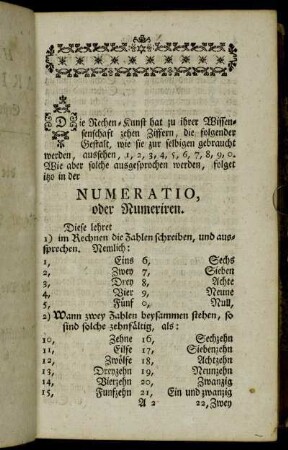 Die Rechen-Kunst hat zu ihrer Wissen-
senschafft zehen Ziffern, die folgender
Gestalt, wie sie zur selbigen gebraucht
werden, aussehen, 1, 2, 3, 4, 5, 6, 7, 8, 9, 0.
Wie aber solche ausgesprochen werden, folget
itzo in der
NUMERATIO,
oder Numeriren.
Diese lehret
1) im Rechnen die Zahlen schreiben, und aus-
sprochen. Nemlich:
1, Eins 6, Sechs
2, Zwey 7, Sieben
3, Drey 8, Achte
4, Vier 9, Neune
5, Fünf 0, Null,
2) Wann zwey Zahlen beysammen stehen, so
sind solche zehnfältig, als:
10, Zehne 16, Sechzehn
11, Eilfe 17, Siebenzehn
12, Zwölfe 18, Achtzehn
13, Dreyzehn 19, Neunzehn
14, Vierzehn 20, Zwanzig
15, Funfzehn 21, Ein und zwanzig
A 2 22, Zwey